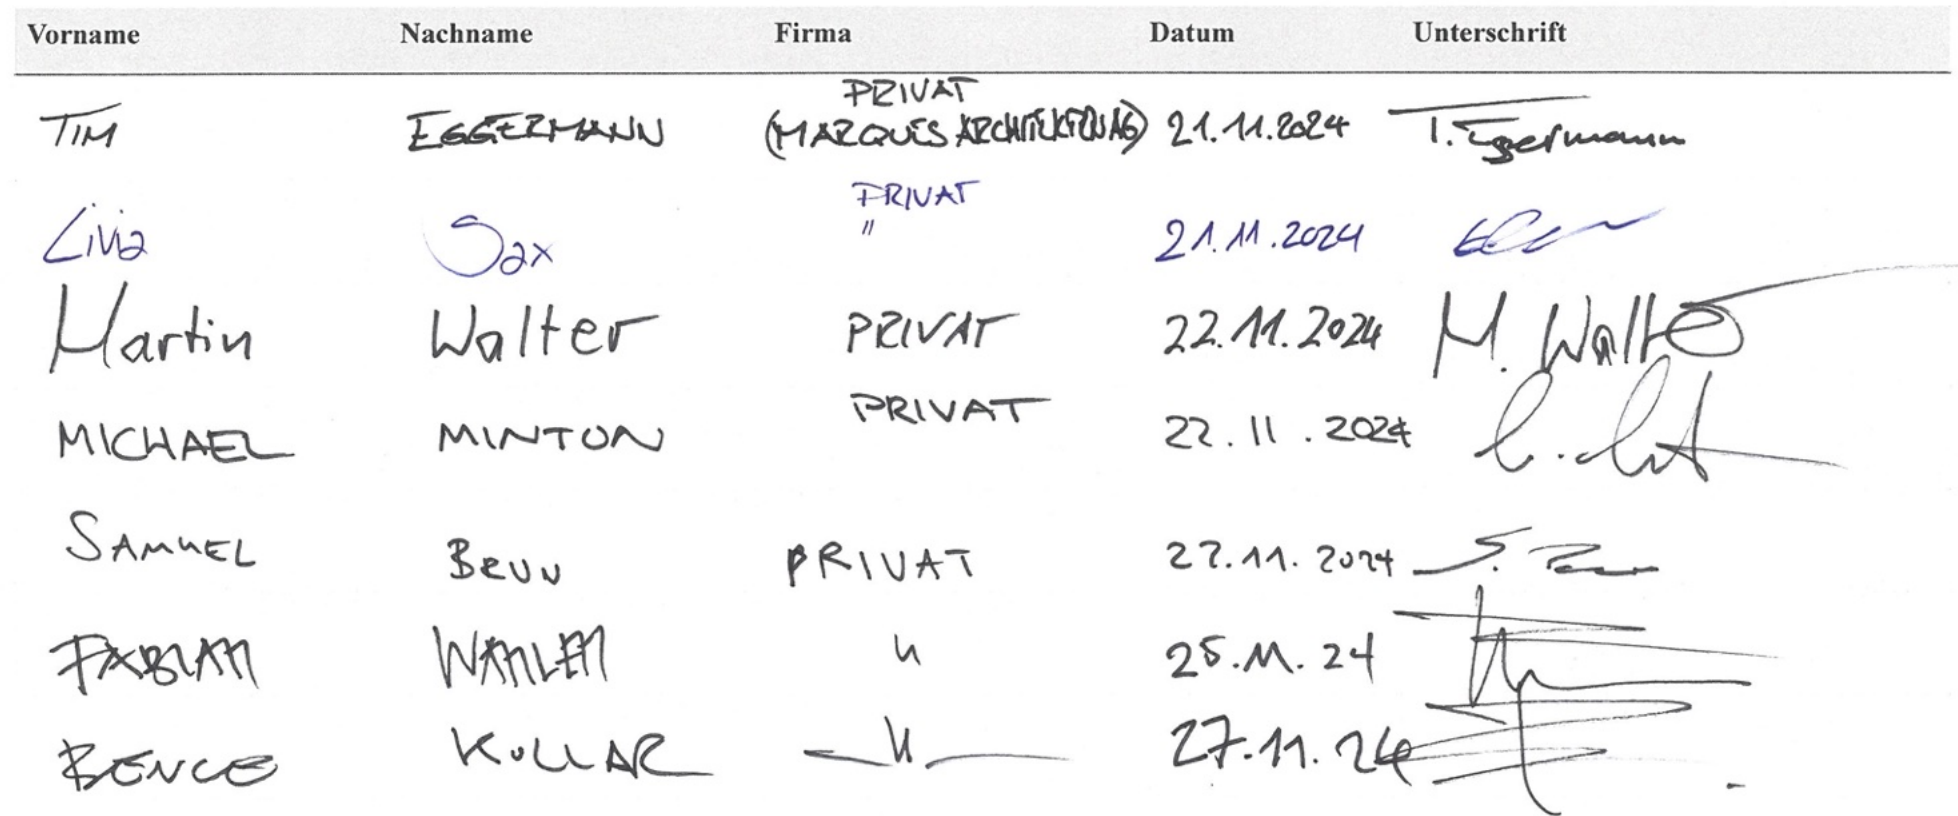 Vorname Nachname Firma Datum Unterschrift
PRIVAT
TIM EGGERMANN (MARQUES ARCHITEKTEN AG) 21.11.2024 T. Eggermann
PRIVAT
Livia Sax " 21.11.2024
Martin Walter PRIVAT 22.11.2024 M. Walter
MICHAEL MINTON PRIVAT 22.11.2024
SAMUEL BRUN PRIVAT 22.11.2024
FABIAN 25.11.24
BENCE KOLLAR 27.11.24